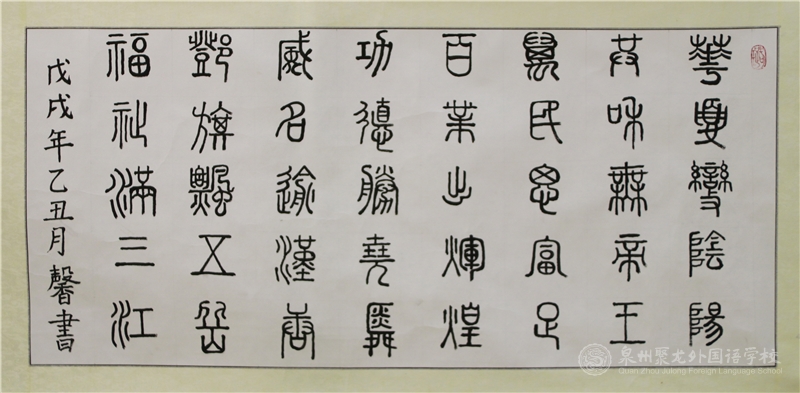 華夏變陰陽
共和無帝王
萬民思富足
百業出輝煌
功德勝堯舜
威名逾漢唐
鄧旗飄五岳
福祉滿三江
戊戌年乙丑月馨書
泉州聚龙外国语学校
Quanzhou Julong Foreign Language School